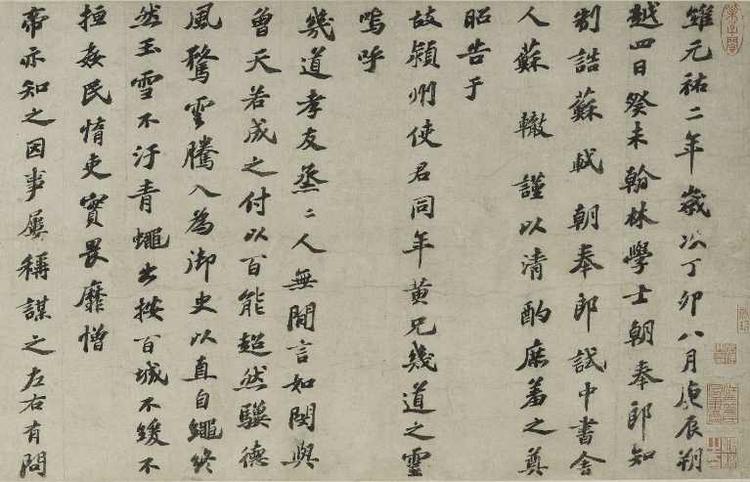 維元祐二年歲次丁卯八月庚辰朔
越四日癸未翰林學士朝奉郎知
制誥蘇軾朝奉郎試中書舍
人蘇轍謹以清酌庶羞之奠
昭告于
故潁州使君同年黃兄幾道之靈
嗚呼
幾道孝友烝〻人無閒言如閔與
曾天若成之付以百能超然驥德
風騖雲騰入為御史以直自繩終
然玉雪不汙青蠅出按百城不緩不
搄姦民惰吏實畏靡憎
帝亦知之因事屢稱謀之左右有問